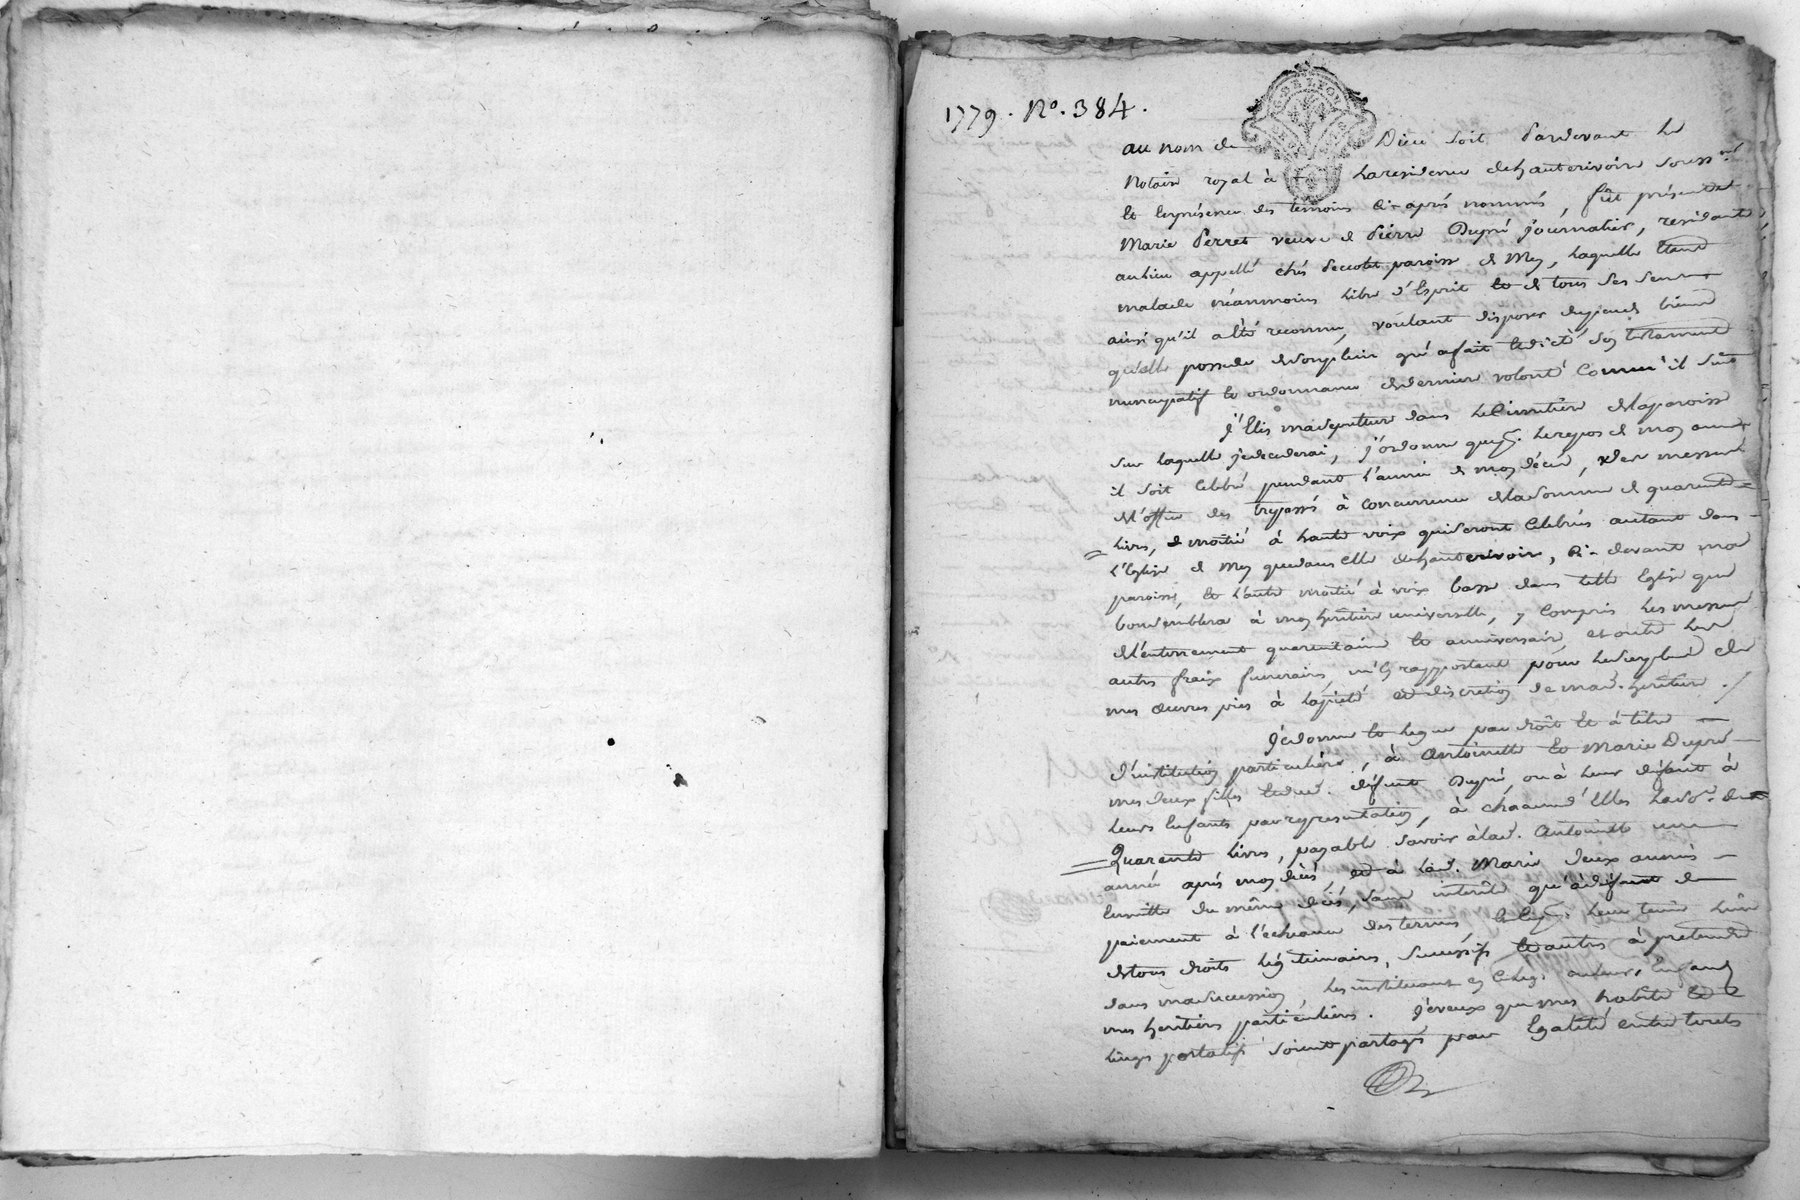 1779. N°. 384.
G. DE LYON
au nom de Dieu soit Pardevant Le
Notaire royal à La residence dehauterivoire souss.né
Et Enprésence des temoins Ci-après nommés, fût présente
Marie Perret veuve de Pierre Dupré journalier, residante
aulieu appellé chés paroisse de Mey, Laquelle Etant
malade néanmoins Libre d'Esprit Et de tous ses sens
ainsi qu'il aEté reconnu, voulant disposer dupeude biens
qu'elle possede deson plein gré afait Et dicté son testament
nuncupatif Et ordonnance dederniere volonté Comme il suit
J'Elis masepulture dans LeCimetiere delaparoisse
sur laquelle jedecederai, j'ordonne que p.r Lerepos de mon ame
il soit Célébré pendant L'année de mon décès, des messes
del'office des trepassés à concurrence delasomme de quarente
Livres, de moitié à haute voix quiseront Celebrées autant dans
L'Eglise de Mey quedans celle dehauterivoire, Ci-devant ma
paroisse, Et L'autre moitié à voix basse dans telle Eglise que
bonsemblera à mon héritiere universelle, y Compris Les messes
del'enterrement quarentaine Et anniversaire, et outre Les
autres fraix funeraires, m'en rapportant pour Lesurplus de
mes œuvres pies à Lapieté et discretion de mad. heritiere ./
Jedonne Et Legue par droit Et à titre
d'institution particuliere, à Antoinette Et Marie Dupré
mes deux filles Et dud. défunt Dupré, ou à Leur défaut à
Leurs Enfants par representation, à chacune d'Elles Laso.e de
Quarente Livres, payable savoir àlad. Antoinette une
année après mon décès, et à Lad. Marie deux années
Ensuitte du même décès, sans interêt qu'àdéfaut de
paiement à l'échéance destermes, Leur tenir Lieu
detous droits Légitimaires, successifs Et autres à pretendre
dans masuccession, Les instituant en
mes heritiers particuliers. Jeveux que mes habits Et
Linges portatifs soient partagés par Egalité entre Lesd.